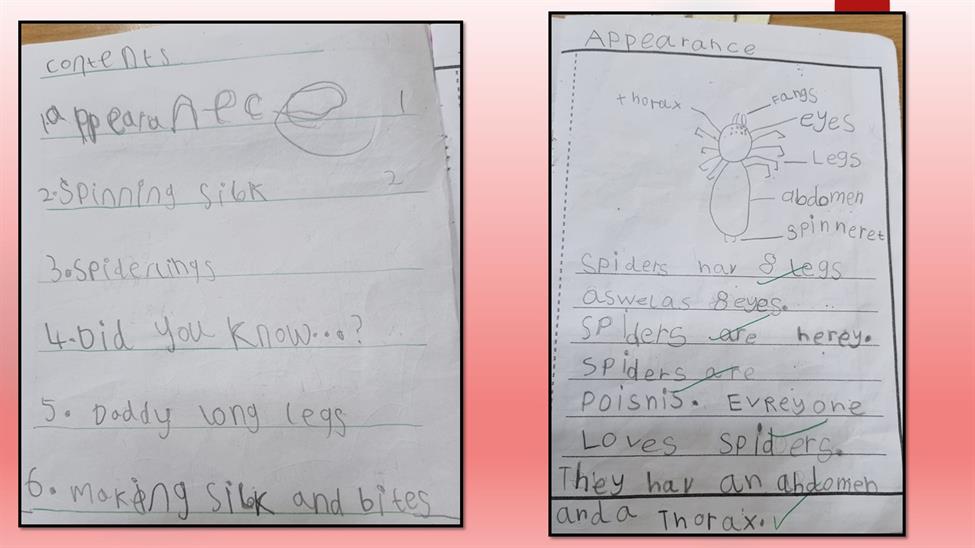 contents
1appearanec 1
2.Spinning silk 2
3.spiderlings
4.Did you Know...?
5. Daddy long legs
6. making silk and bites
Appearance
thorax
Fangs
eyes
Legs
abdomen
spinneret
Spiders hav 8 legs
aswelas 8 eyes.
SPiders are herey.
SPiders are
Poisnis. EVReyone
Loves spiders.
They hav an abdomen
and a Thorax.